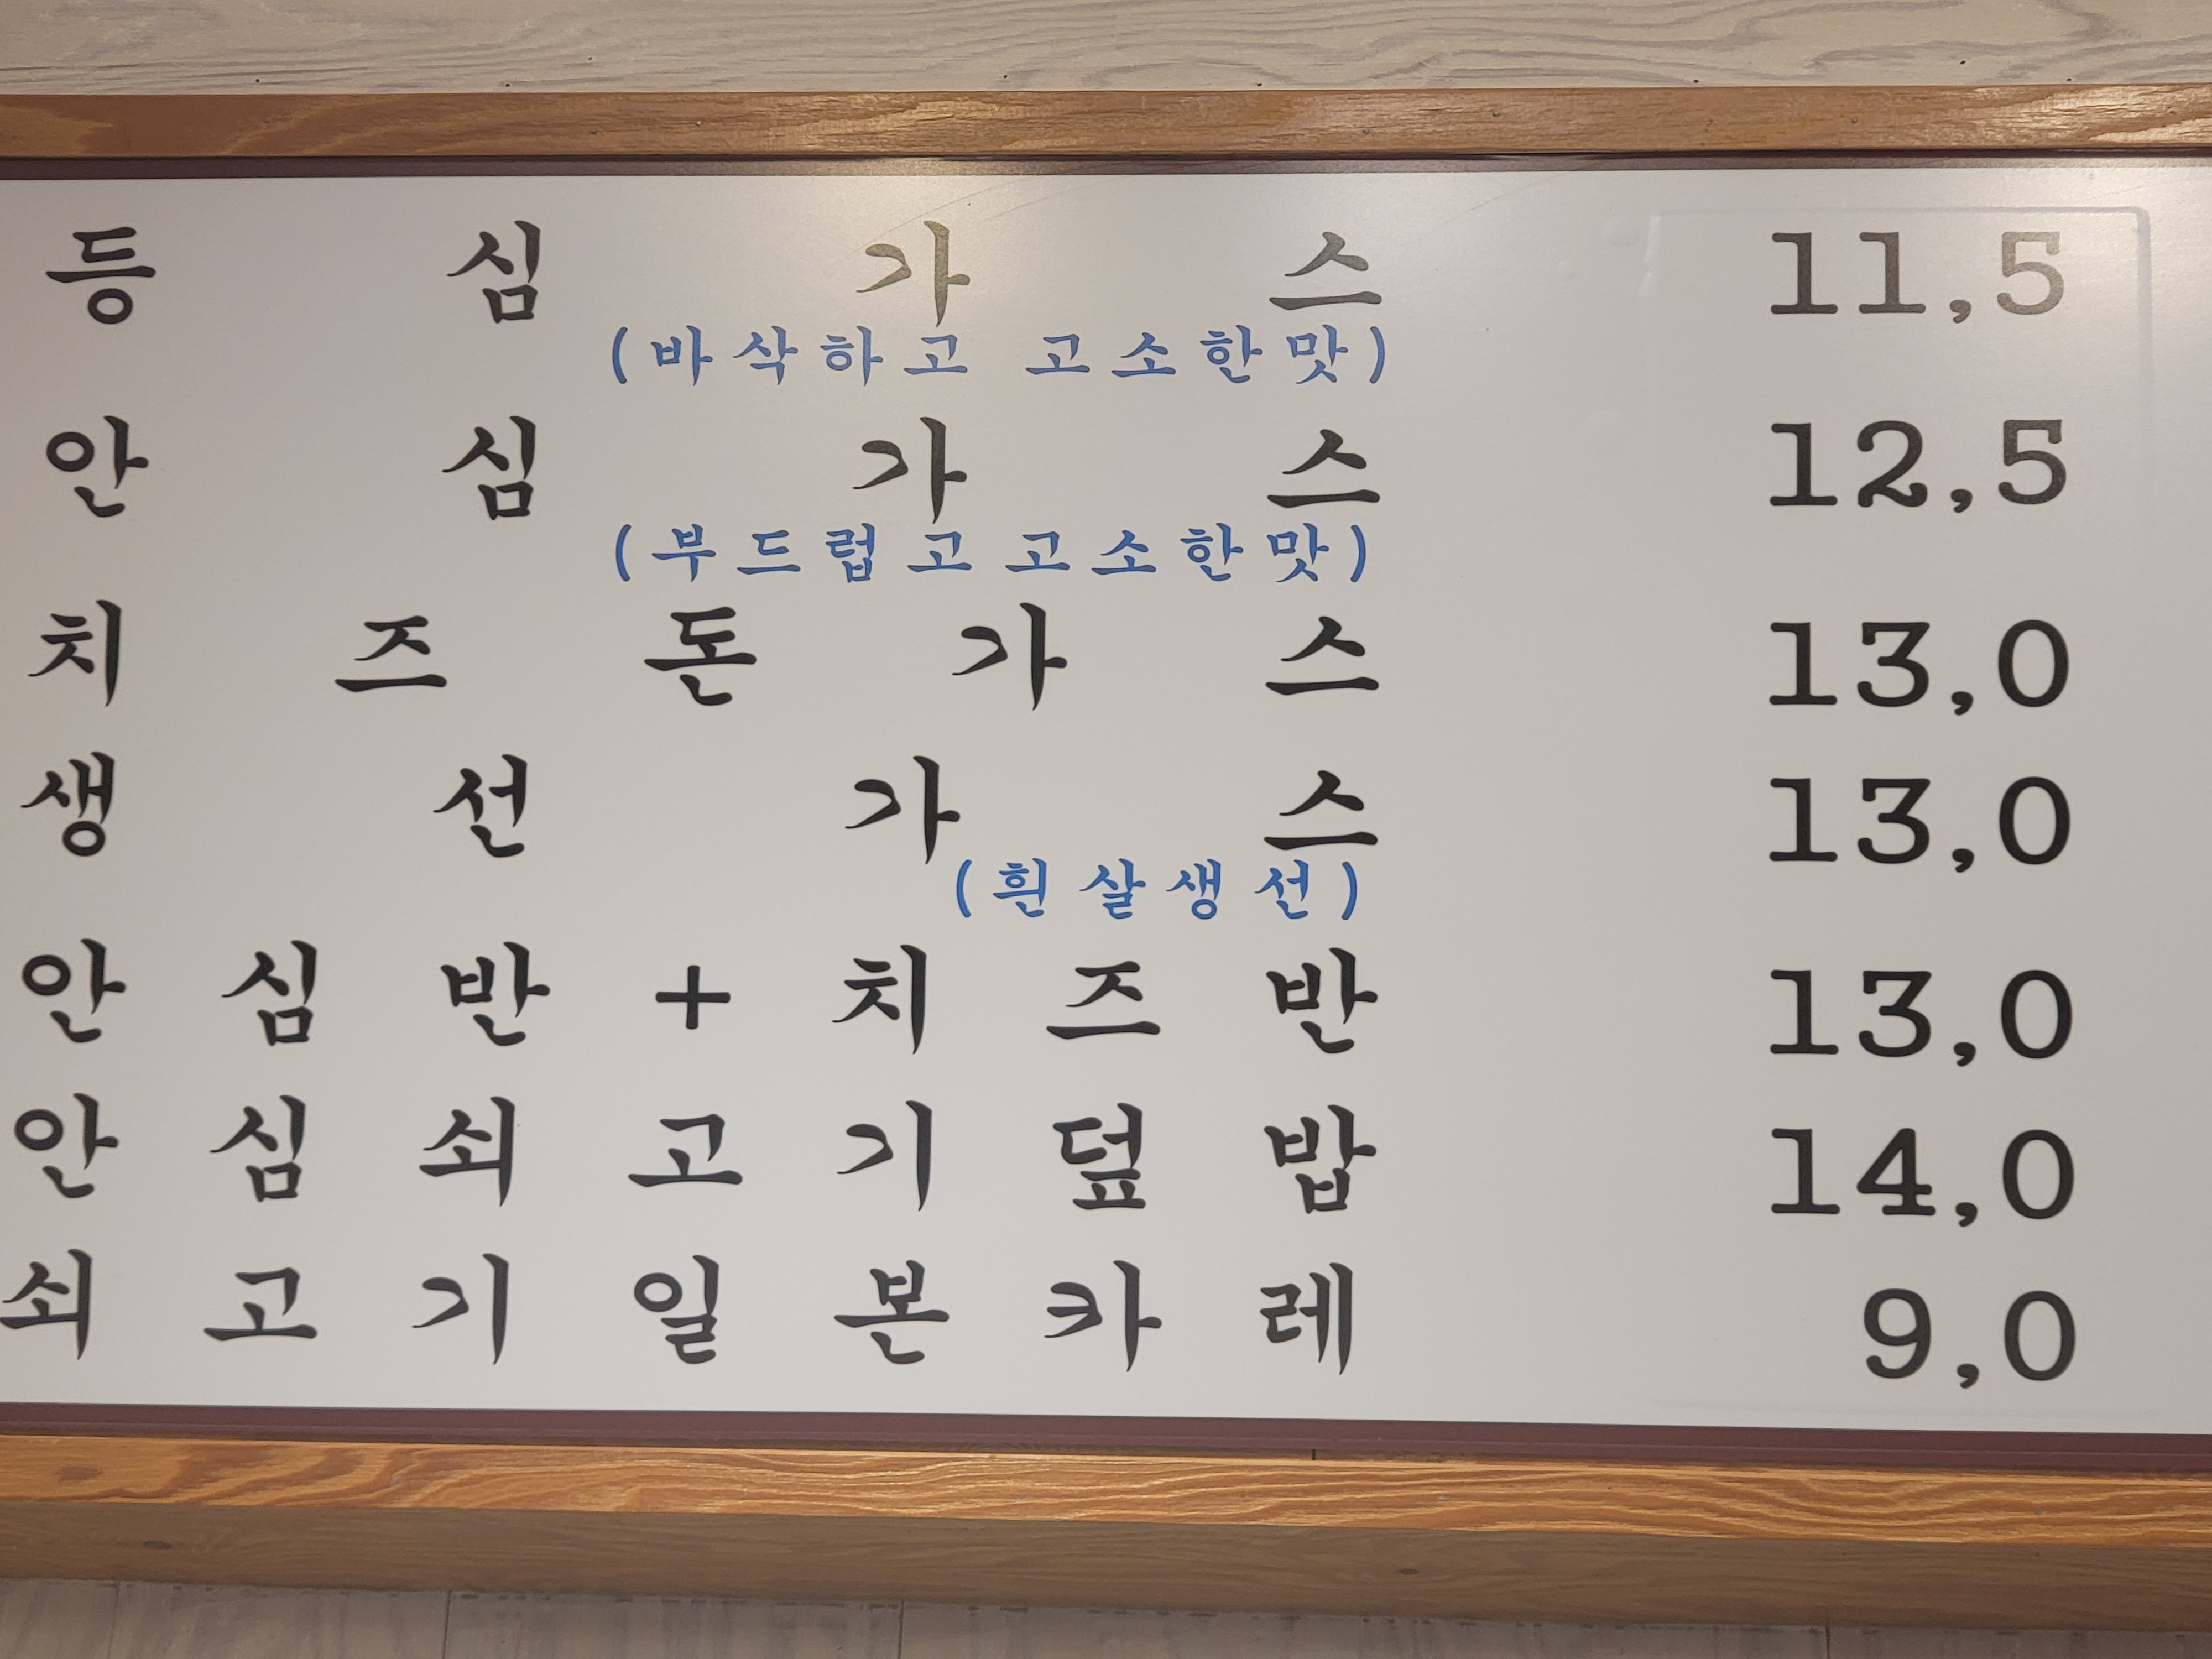 등심가스 11,5
(바삭하고 고소한맛)
안심가스 12,5
(부드럽고 고소한맛)
치즈돈가스 13,0
생선가스 13,0
(흰살생선)
안심반+치즈반 13,0
안심쇠고기덮밥 14,0
쇠고기일본카레 9,0